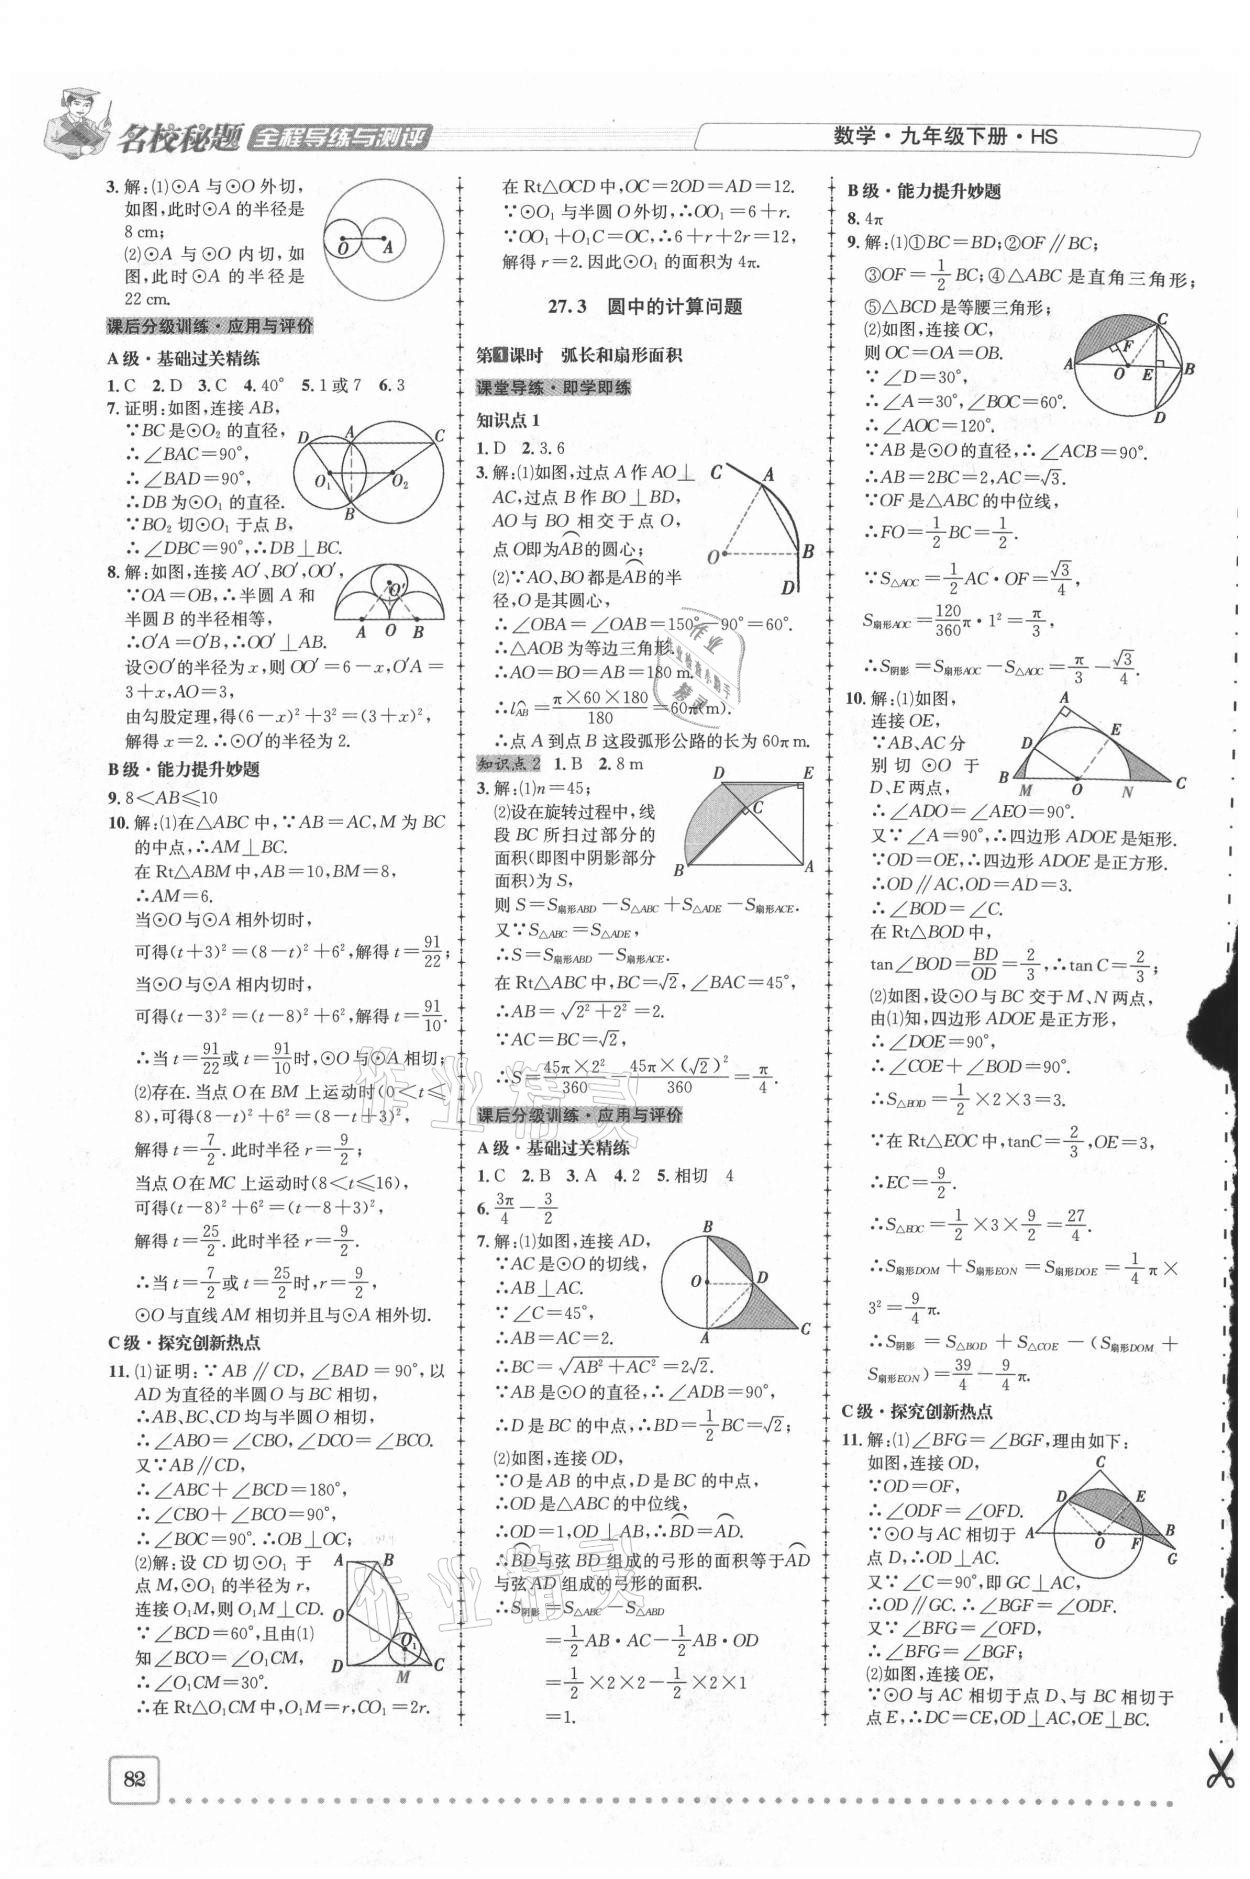 名校秘题 全程导练与测评
数学·九年级下册·HS
3. 解:(1)⊙A 与⊙O 外切,
如图,此时⊙A 的半径是
8 cm;
(2)⊙A 与⊙O 内切,如
图,此时⊙A 的半径是
22 cm.
O A
课后分级训练·应用与评价
A 级·基础过关精练
1. C 2. D 3. C 4. 40° 5. 1 或 7 6. 3
7. 证明:如图,连接 AB,
∵BC 是⊙O₂ 的直径,
∴∠BAC=90°,
∴∠BAD=90°,
∴DB 为⊙O₁ 的直径.
∵BO₂ 切⊙O₁ 于点 B,
∴∠DBC=90°,∴DB⊥BC.
D A C O₁ O₂ B
8. 解:如图,连接 AO′、BO′,OO′,
∵OA=OB,∴半圆 A 和
半圆 B 的半径相等,
∴O′A=O′B,∴OO′⊥AB.
设⊙O′的半径为 x,则 OO′=6-x,O′A=
3+x,AO=3,
由勾股定理,得(6-x)²+3²=(3+x)²,
解得 x=2.∴⊙O′的半径为 2.
O′ A O B
B 级·能力提升妙题
9. 8<AB≤10
10. 解:(1)在△ABC 中,∵AB=AC,M 为 BC
的中点,∴AM⊥BC.
在 Rt△ABM 中,AB=10,BM=8,
∴AM=6.
当⊙O 与⊙A 相外切时,
可得(t+3)²=(8-t)²+6²,解得 t=91/22;
当⊙O 与⊙A 相内切时,
可得(t-3)²=(t-8)²+6²,解得 t=91/10.
∴当 t=91/22或 t=91/10时,⊙O 与⊙A 相切;
(2)存在.当点 O 在 BM 上运动时(0<t≤
8),可得(8-t)²+6²=(8-t+3)²,
解得 t=7/2.此时半径 r=9/2;
当点 O 在 MC 上运动时(8<t≤16),
可得(t-8)²+6²=(t-8+3)²,
解得 t=25/2.此时半径 r=9/2.
∴当 t=7/2或 t=25/2时,r=9/2,
⊙O 与直线 AM 相切并且与⊙A 相外切.
C 级·探究创新热点
11. (1)证明:∵AB∥CD,∠BAD=90°,以
AD 为直径的半圆 O 与 BC 相切,
∴AB、BC、CD 均与半圆 O 相切,
∴∠ABO=∠CBO,∠DCO=∠BCO.
又∵AB∥CD,
∴∠ABC+∠BCD=180°,
∴∠CBO+∠BCO=90°,
∴∠BOC=90°.∴OB⊥OC;
(2)解:设 CD 切⊙O₁ 于
点 M,⊙O₁ 的半径为 r,
连接 O₁M,则 O₁M⊥CD.
∵∠BCD=60°,且由(1)
知∠BCO=∠O₁CM,
∴∠O₁CM=30°.
∴在 Rt△O₁CM 中,O₁M=r,CO₁=2r.
A B O O₁ D M C
在 Rt△OCD 中,OC=2OD=AD=12.
∵⊙O₁ 与半圆 O 外切,∴OO₁=6+r.
∵OO₁+O₁C=OC,∴6+r+2r=12,
解得 r=2.因此⊙O₁ 的面积为 4π.
27.3 圆中的计算问题
第1课时 弧长和扇形面积
课堂导练·即学即练
知识点 1
1. D 2. 3.6
3. 解:(1)如图,过点 A 作 AO⊥
AC,过点 B 作 BO⊥BD,
AO 与 BO 相交于点 O,
点 O即为AB⌒的圆心;
(2)∵AO、BO 都是AB⌒的半
径,O 是其圆心,
∴∠OBA=∠OAB=150°-90°=60°.
∴△AOB 为等边三角形.
∴AO=BO=AB=180 m.
∴l_AB⌒=π×60×180/180=60π(m).
∴点 A 到点 B 这段弧形公路的长为 60π m.
C A O B D
知识点 2 1. B 2. 8 m
3. 解:(1)n=45;
(2)设在旋转过程中,线
段 BC 所扫过部分的
面积(即图中阴影部分
面积)为 S,
则 S=S扇形ABD-S△ABC+S△ADE-S扇形ACE.
又∵S△ABC=S△ADE,
∴S=S扇形ABD-S扇形ACE.
在 Rt△ABC 中,BC=√2,∠BAC=45°,
∴AB=√(2²+2²)=2.
∵AC=BC=√2,
∴S=45π×2²/360-45π×(√2)²/360=π/4.
D E C B A
课后分级训练·应用与评价
A 级·基础过关精练
1. C 2. B 3. A 4. 2 5. 相切 4
6. 3π/4-3/2
7. 解:(1)如图,连接 AD,
∵AC 是⊙O 的切线,
∴AB⊥AC.
∵∠C=45°,
∴AB=AC=2.
∴BC=√(AB²+AC²)=2√2.
∵AB 是⊙O 的直径,∴∠ADB=90°,
∴D 是 BC 的中点,∴BD=1/2BC=√2;
(2)如图,连接 OD,
∵O 是 AB 的中点,D 是 BC 的中点,
∴OD 是△ABC 的中位线,
∴OD=1,OD⊥AB,∴BD⌒=AD⌒.
∴BD⌒与弦 BD 组成的弓形的面积等于AD⌒
与弦 AD 组成的弓形的面积.
∴S阴影=S△ABC-S△ABD
=1/2AB·AC-1/2AB·OD
=1/2×2×2-1/2×2×1
=1.
B O D A C
B 级·能力提升妙题
8. 4π
9. 解:(1)①BC=BD;②OF∥BC;
③OF=1/2BC;④△ABC 是直角三角形;
⑤△BCD 是等腰三角形;
(2)如图,连接 OC,
则 OC=OA=OB.
∵∠D=30°,
∴∠A=30°,∠BOC=60°.
∴∠AOC=120°.
∵AB 是⊙O 的直径,∴∠ACB=90°.
∴AB=2BC=2,AC=√3.
∵OF 是△ABC 的中位线,
∴FO=1/2BC=1/2.
∵S△AOC=1/2AC·OF=√3/4,
S扇形AOC=120/360π·1²=π/3,
∴S阴影=S扇形AOC-S△AOC=π/3-√3/4.
C F A O E B D
10. 解:(1)如图,
连接 OE,
∵AB、AC 分
别切⊙O 于
D、E 两点,
∴∠ADO=∠AEO=90°.
又∵∠A=90°,∴四边形 ADOE 是矩形.
∵OD=OE,∴四边形 ADOE 是正方形.
∴OD∥AC,OD=AD=3.
∴∠BOD=∠C.
在 Rt△BOD 中,
tan∠BOD=BD/OD=2/3,∴tan C=2/3;
(2)如图,设⊙O 与 BC 交于 M、N 两点,
由(1)知,四边形 ADOE 是正方形,
∴∠DOE=90°,
∴∠COE+∠BOD=90°.
∴S△BOD=1/2×2×3=3.
∵在 Rt△EOC 中,tanC=2/3,OE=3,
∴EC=9/2.
∴S△EOC=1/2×3×9/2=27/4.
∴S扇形DOM+S扇形EON=S扇形DOE=1/4π×
3²=9/4π.
∴S阴影=S△BOD+S△COE-(S扇形DOM+
S扇形EON)=39/4-9/4π.
A D E B M O N C
C 级·探究创新热点
11. 解:(1)∠BFG=∠BGF,理由如下:
如图,连接 OD,
∵OD=OF,
∴∠ODF=∠OFD.
∵⊙O 与 AC 相切于
点 D,∴OD⊥AC.
又∵∠C=90°,即 GC⊥AC,
∴OD∥GC.∴∠BGF=∠ODF.
又∵∠BFG=∠OFD,
∴∠BFG=∠BGF;
(2)如图,连接 OE,
∵⊙O 与 AC 相切于点 D、与 BC 相切于
点 E,∴DC=CE,OD⊥AC,OE⊥BC.
C D E A O F B G
82
作业精灵
作业精灵